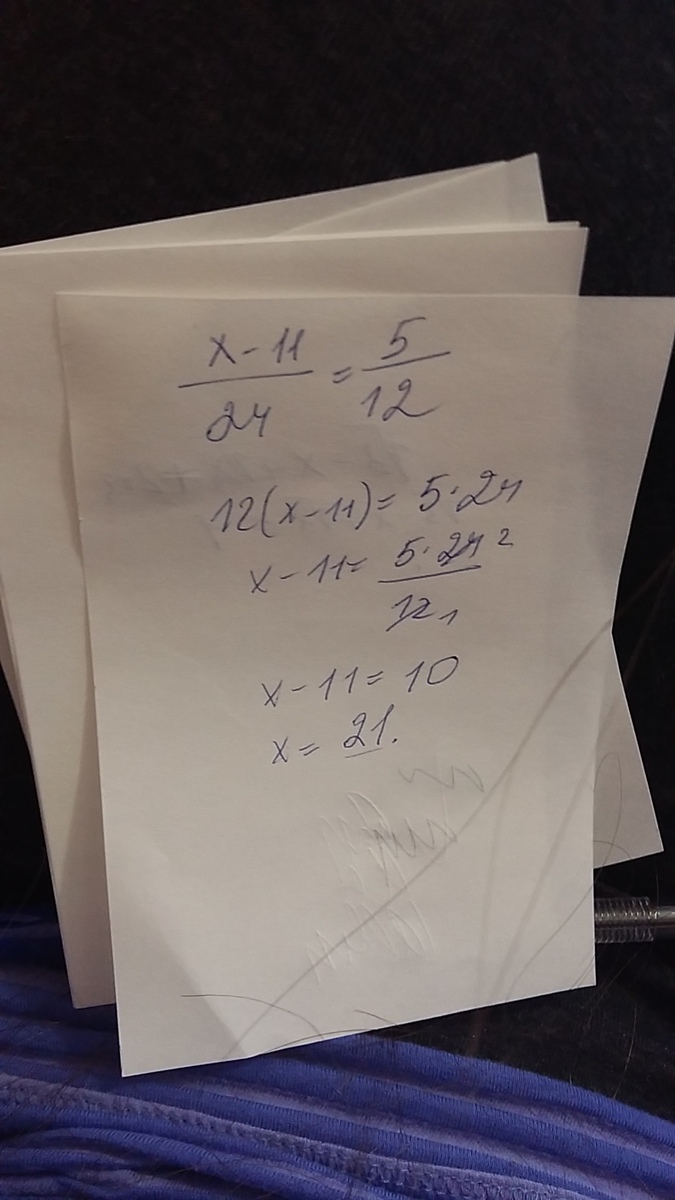 x - 11 / 24 = 5 / 12
12(x - 11) = 5 · 24
x - 11 = 5 · 24 2 / 12 1
x - 11 = 10
x = 21.